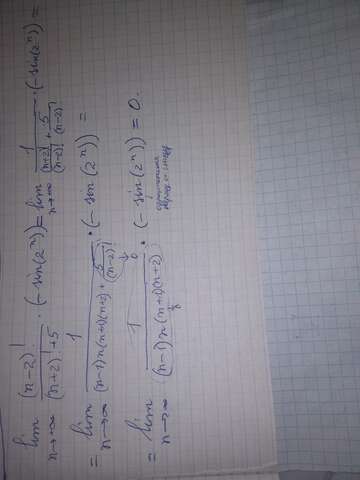 lim n→+∞ (n-2)! / ((n+2)!+5) · (-sin(2ⁿ)) = lim n→+∞ 1 / ((n+2)!/(n-2)! + 5/(n-2)!) · (-sin(2ⁿ)) =
= lim n→∞ 1 / ((n-1)n(n+1)(n+2) + 5/(n-2)! ↓ 0) · (-sin(2ⁿ)) =
= lim n→∞ 1 / ((n-1)n(n+1)(n+2)) · (-sin(2ⁿ)) = 0.